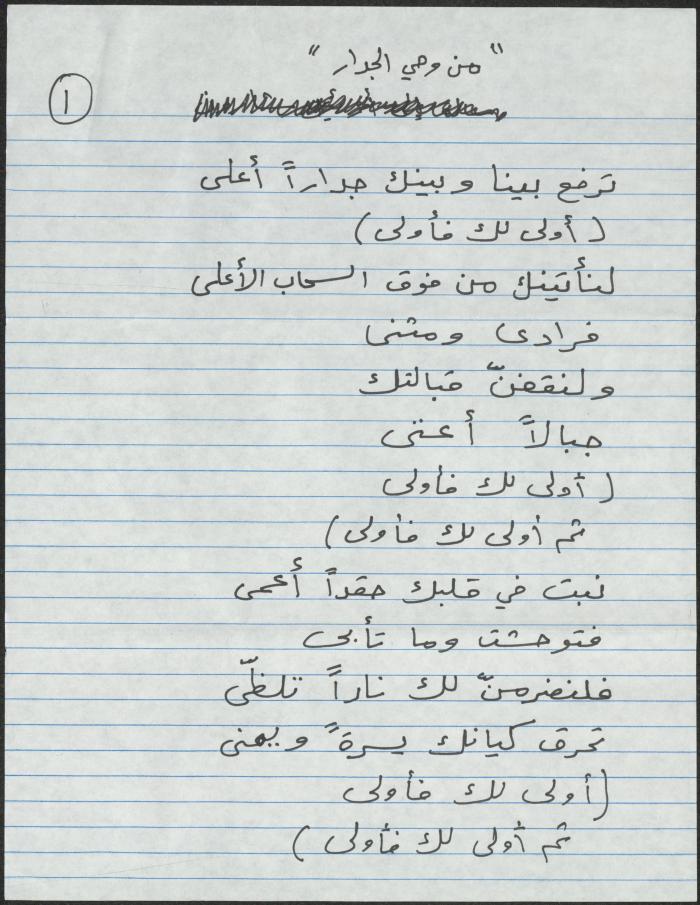 "من وحي الجدار"
١
ترفع بينا وبينك جداراً أعلى
(أولى لك فأولى)
لنأتينك من فوق السحاب الأعلى
فرادى ومثنى
ولنقفنّ قبالتك
جبالاً أعتى
(أولى لك فأولى
ثم أولى لك فأولى)
نبت في قلبك حقداً أعمى
فتوحشت وما تأبى
فلنضرمنّ لك ناراً تلظّى
تحرق كيانك يسرةً ويمنى
(أولى لك فأولى
ثم أولى لك فأولى)